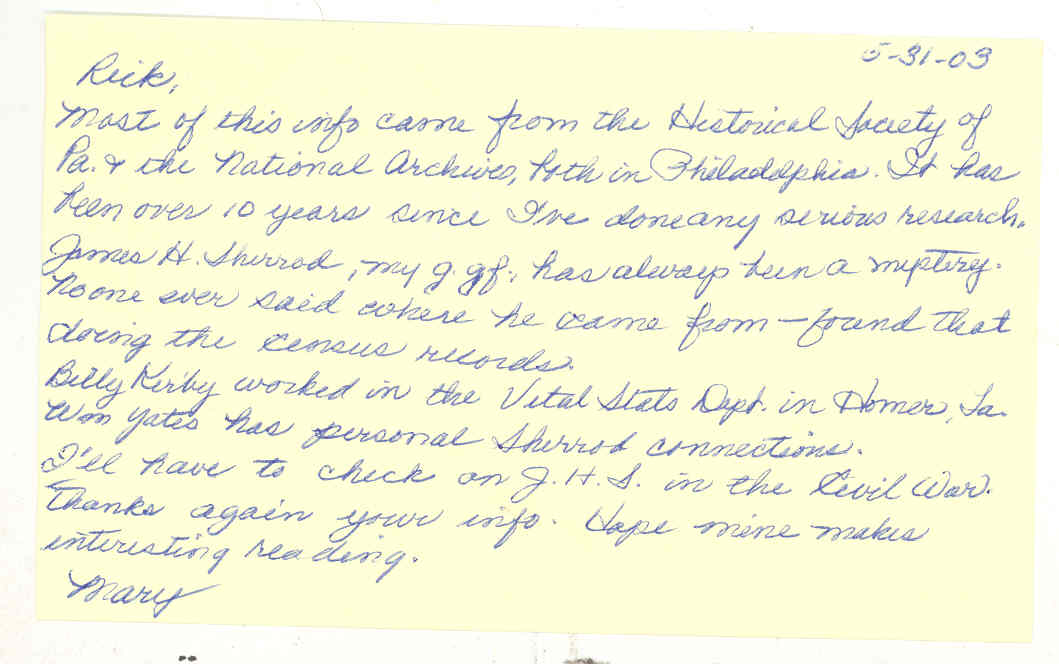 5-31-03
Rick,
Most of this info came from the Historical Society of
Pa. & the National Archives, both in Philadelphia. It has
been over 10 years since I've done any serious research.
James H. Sherrod, my g.gf, has always been a mystery.
No one ever said where he came from – found that
doing the census records.
Billy Kirby worked in the Vital Stats Dept. in Homer, La.
Wm Yates has personal Sherrod connections.
I'll have to check on J.H.S. in the Civil War.
Thanks again your info. Hope mine makes
interesting reading.
Mary